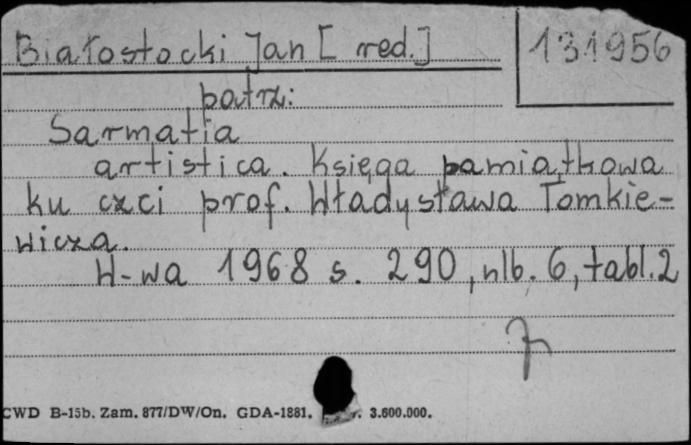 Białostocki Jan [red.]
131956
patrz:
Sarmatia
artistica. Księga pamiątkowa
ku czci prof. Władysława Tomkie-
wicza.
W-wa 1968 s. 290, nlb. 6, tabl. 2
CWD B-15b. Zam. 877/DW/On. GDA-1881. 3.600.000.